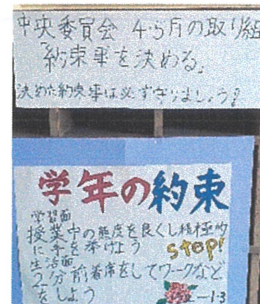 中央委員会 4·5月の取り組
「約束事を決める」
決めた約束事は必ず守りましょう!
学年の約束
学習面
授業中の態度を良くし積極的
に手を挙げよう
STOP!
生活面
2分前着席をしてワークなど
をしよう
1-3